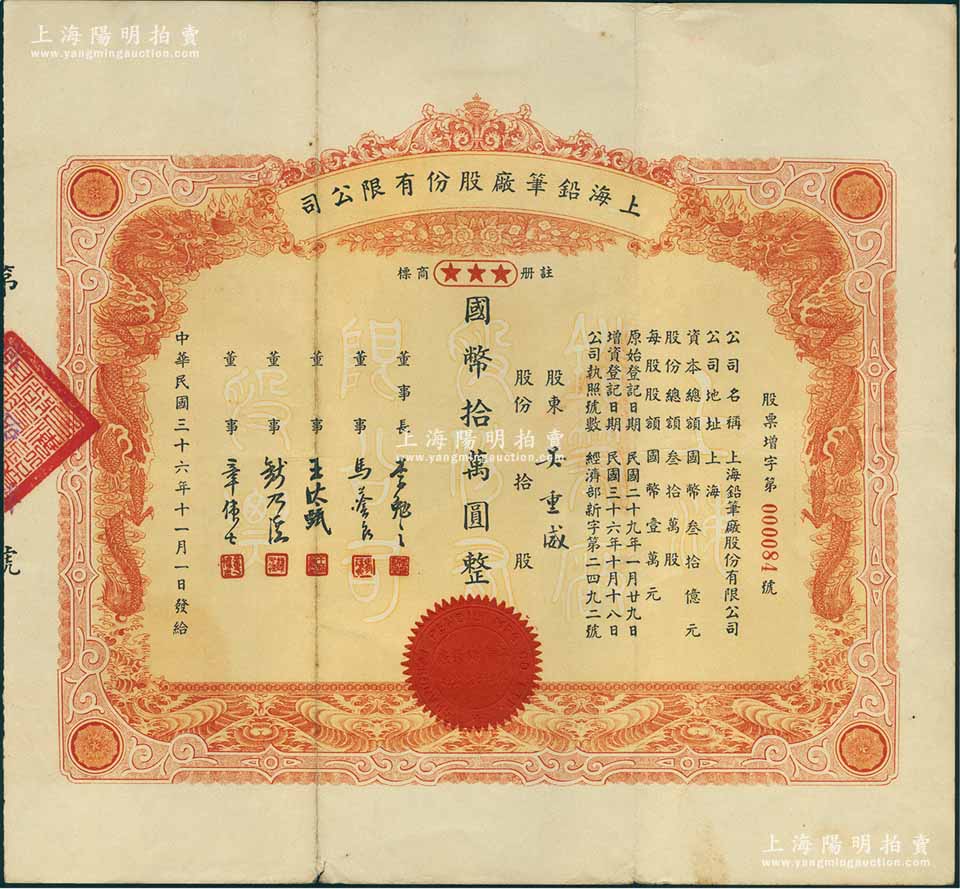 上海陽明拍賣
www.yangmingauction.com
上海鉛筆廠股份有限公司
註册
商標
股票增字第000084號
公司名稱 上海鉛筆廠股份有限公司
公司地址 上海
資本總額 國幣叁拾億元
股份總額 叁拾萬股
每股股額 國幣壹萬元
原始登記日期 民國二十九年一月廿九日
增資登記日期 民國三十六年十月十八日
公司執照號數 經濟部新字第二四九二號
股東 吳重威
股份 拾 股
國幣拾萬圓整
董事長
董事
董事 王
董事
董事 章偉士
中華民國三十六年十一月一日發給
第
號
上海陽明拍賣
www.yangmingauction.com
上海陽明拍賣
www.yangmingauction.com